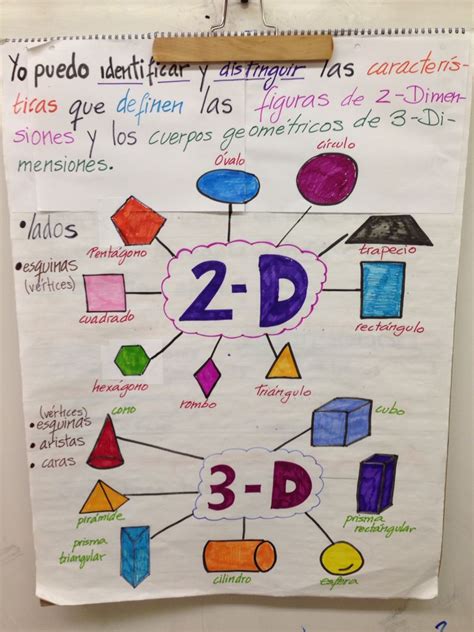 Yo puedo identificar y distinguir las caracterís-
ticas que definen las figuras de 2-Dimen-
siones y los cuerpos geométricos de 3-Di-
mensiones.
Óvalo
círculo
• lados
Pentágono
trapecio
• esquinas
(vértices)
2-D
cuadrado
rectángulo
hexágono
rombo
Triángulo
(vértices)
cono
cubo
• esquinas
• aristas
• caras
3-D
pirámide
prisma
rectangular
prisma
triangular
cilindro
esfera